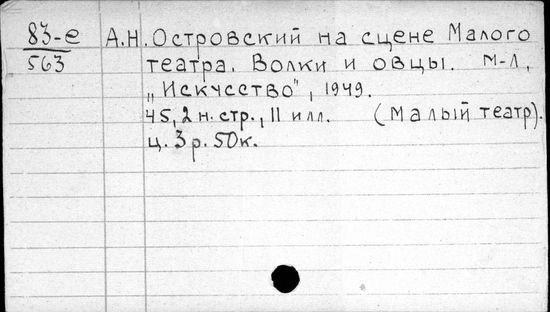 83-е А.Н. Островский на сцене Малого
563 театра. Волки и овцы. М-Л,
„Искусство", 1949.
45,2 н. стр., 11 илл. (Малый театр).
ц. 3 р. 50к.